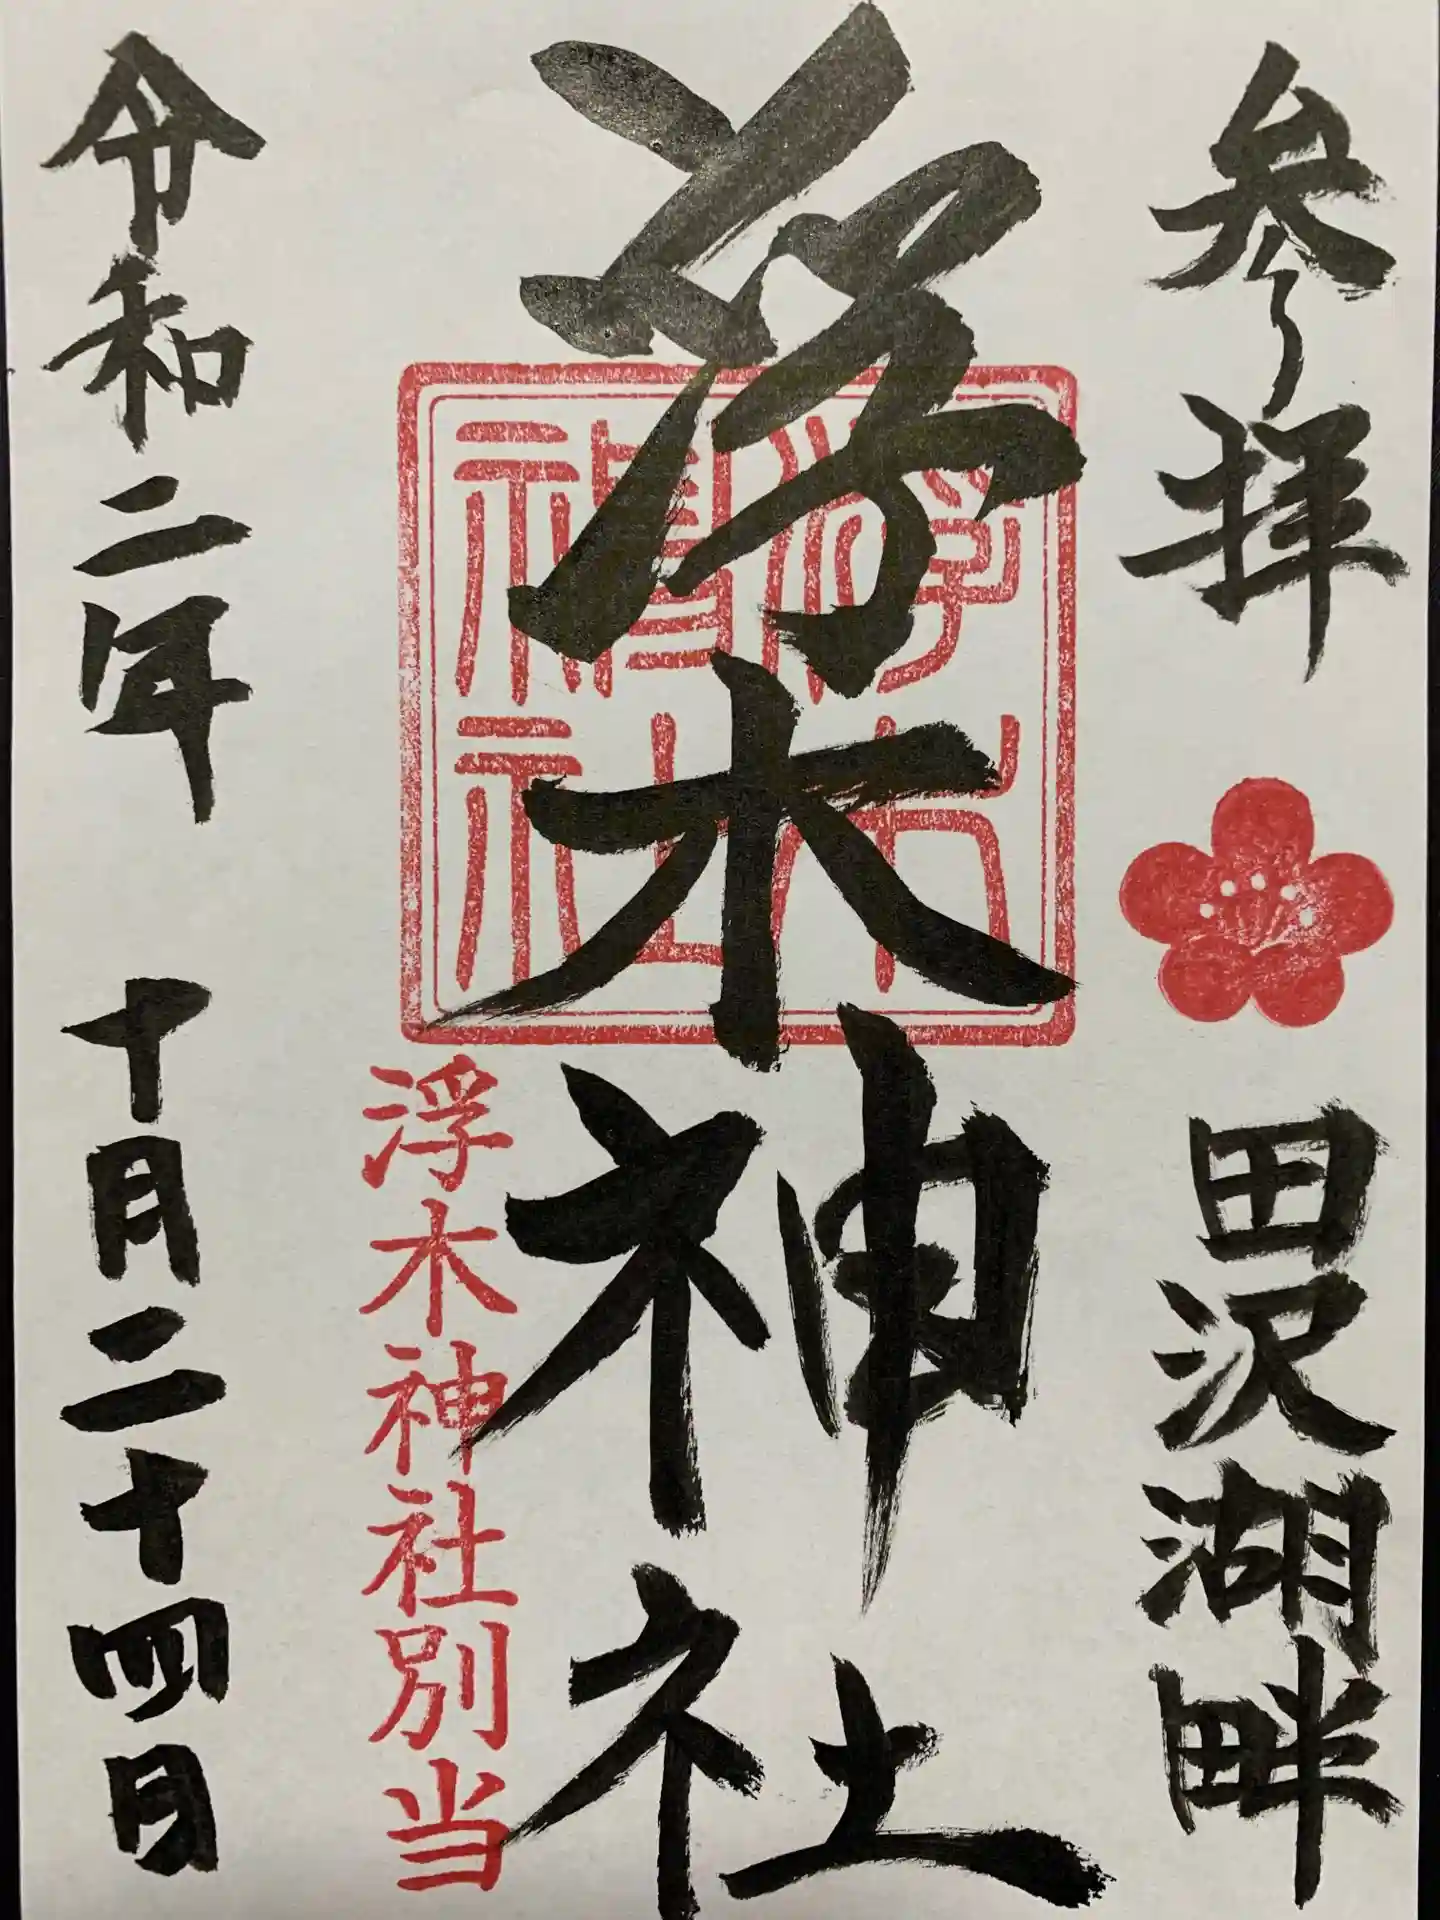 参拝
田沢湖畔
浮木神社
浮木神社
浮木神社別当
令和二年
十月二十四日